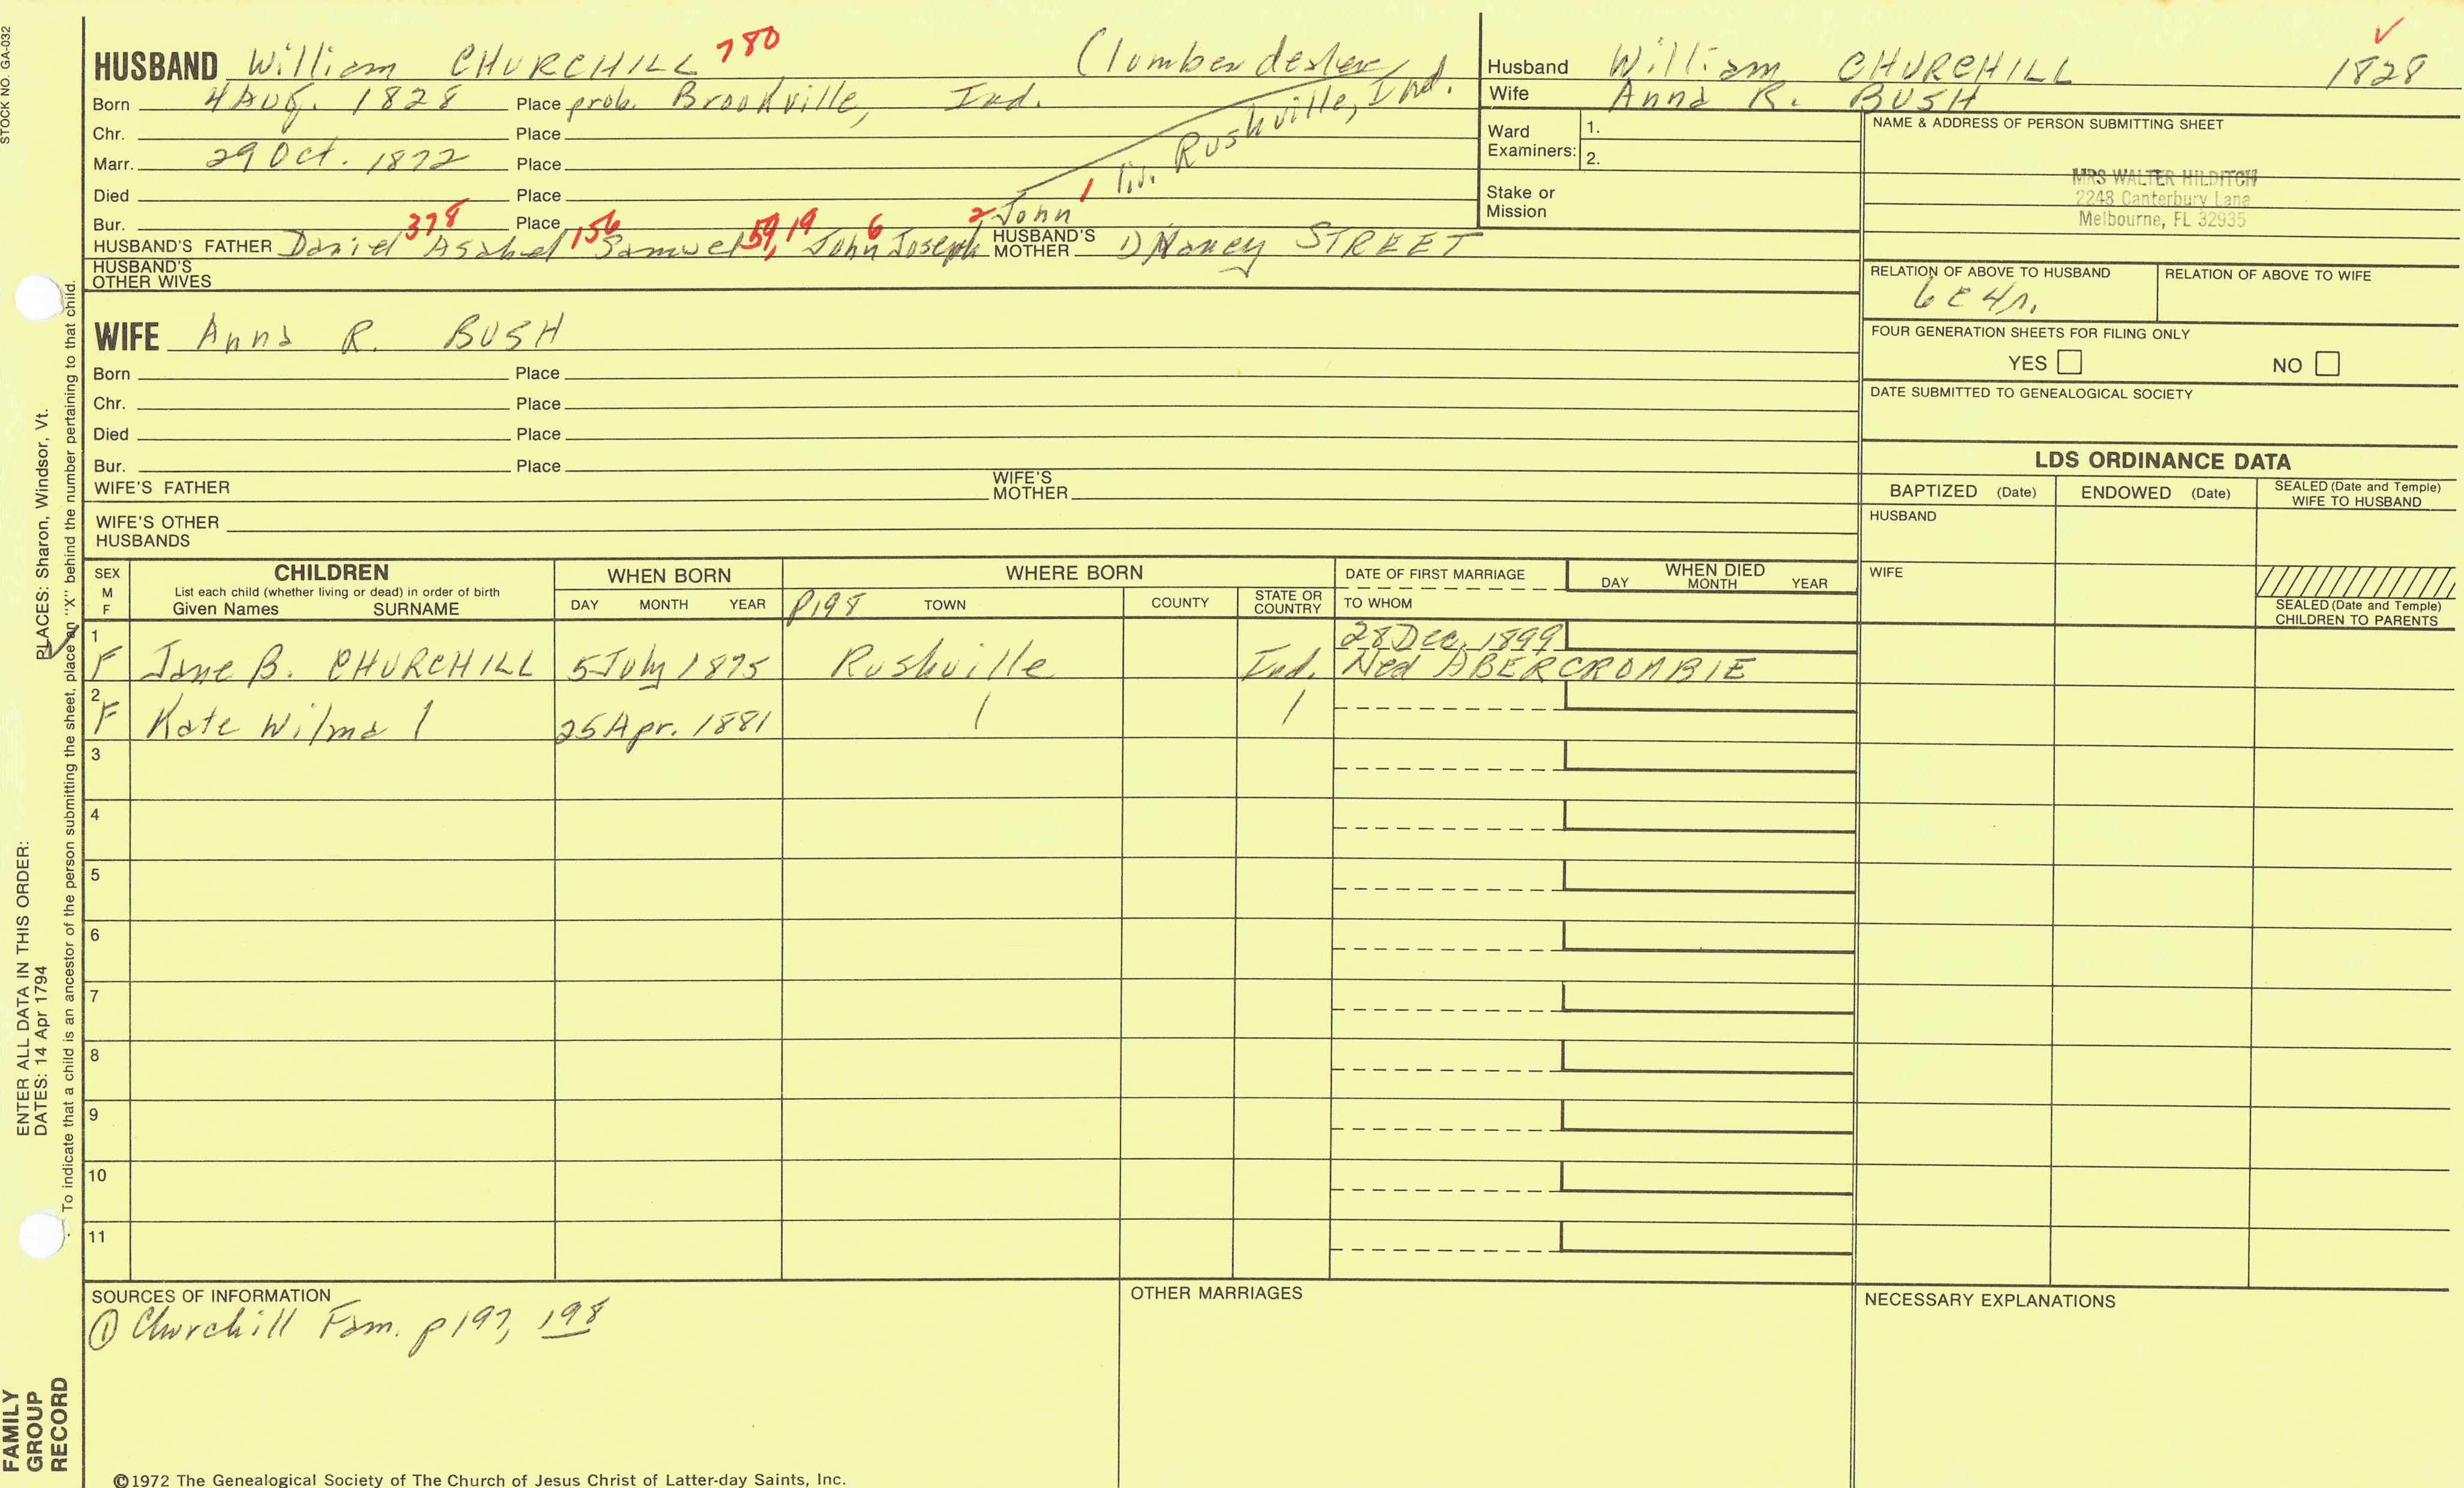 STOCK NO. GA-032
HUSBAND William CHURCHILL 780
Born 4 Aug. 1828 Place prob. Brookville, Ind.
Chr. Place
Marr. 29 Oct. 1872 Place
Died Place
Bur. Place
(lumber dealer
liv. Rushville, Ind.
HUSBAND'S FATHER Daniel 378 Asahel 156 Samuel 59, 19 John 6 Joseph 2 John 1
HUSBAND'S MOTHER 1) Nancy STREET
HUSBAND'S OTHER WIVES
Husband William CHURCHILL 1828
Wife Anna R. BUSH
Ward Examiners: 1.
2.
Stake or Mission
NAME & ADDRESS OF PERSON SUBMITTING SHEET
MRS WALTER HILDITCH
2248 Canterbury Lane
Melbourne, FL 32935
RELATION OF ABOVE TO HUSBAND RELATION OF ABOVE TO WIFE
6c4r.
FOUR GENERATION SHEETS FOR FILING ONLY
YES NO
DATE SUBMITTED TO GENEALOGICAL SOCIETY
WIFE Anna R. BUSH
Born Place
Chr. Place
Died Place
Bur. Place
WIFE'S FATHER WIFE'S MOTHER
WIFE'S OTHER HUSBANDS
LDS ORDINANCE DATA
BAPTIZED (Date) ENDOWED (Date) SEALED (Date and Temple) WIFE TO HUSBAND
HUSBAND
WIFE
SEALED (Date and Temple) CHILDREN TO PARENTS
SEX M F
CHILDREN
List each child (whether living or dead) in order of birth
Given Names SURNAME
WHEN BORN
DAY MONTH YEAR
WHERE BORN
p198 TOWN COUNTY STATE OR COUNTRY
DATE OF FIRST MARRIAGE
TO WHOM
WHEN DIED
DAY MONTH YEAR
28 Dec. 1899
1 F Jane B. CHURCHILL 5 July 1875 Rushville Ind. Ned ABERCROMBIE
2 F Kate Wilma 25 Apr. 1881
3
4
5
6
7
8
9
10
11
SOURCES OF INFORMATION
① Churchill Fam. p197, 198
OTHER MARRIAGES
NECESSARY EXPLANATIONS
©1972 The Genealogical Society of The Church of Jesus Christ of Latter-day Saints, Inc.
FAMILY
GROUP
RECORD
ENTER ALL DATA IN THIS ORDER:
DATES: 14 Apr 1794 PLACES: Sharon, Windsor, Vt.
To indicate that a child is an ancestor of the person submitting the sheet, place an "X" behind the number pertaining to that child.